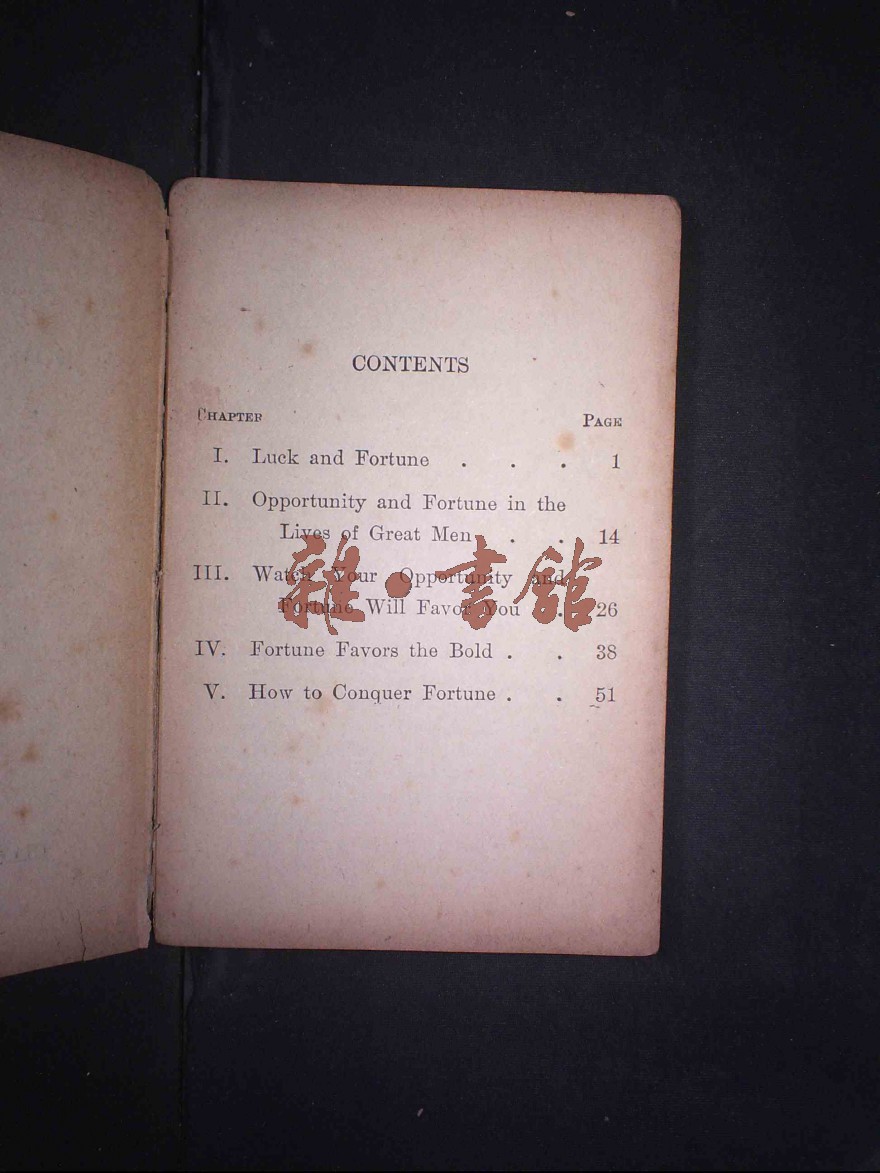 CONTENTS
CHAPTER PAGE
I. Luck and Fortune . . . 1
II. Opportunity and Fortune in the
Lives of Great Men . . 14
III. Watch Your Opportunity and
Fortune Will Favor You . 26
IV. Fortune Favors the Bold . . 38
V. How to Conquer Fortune . . 51
雜·書館